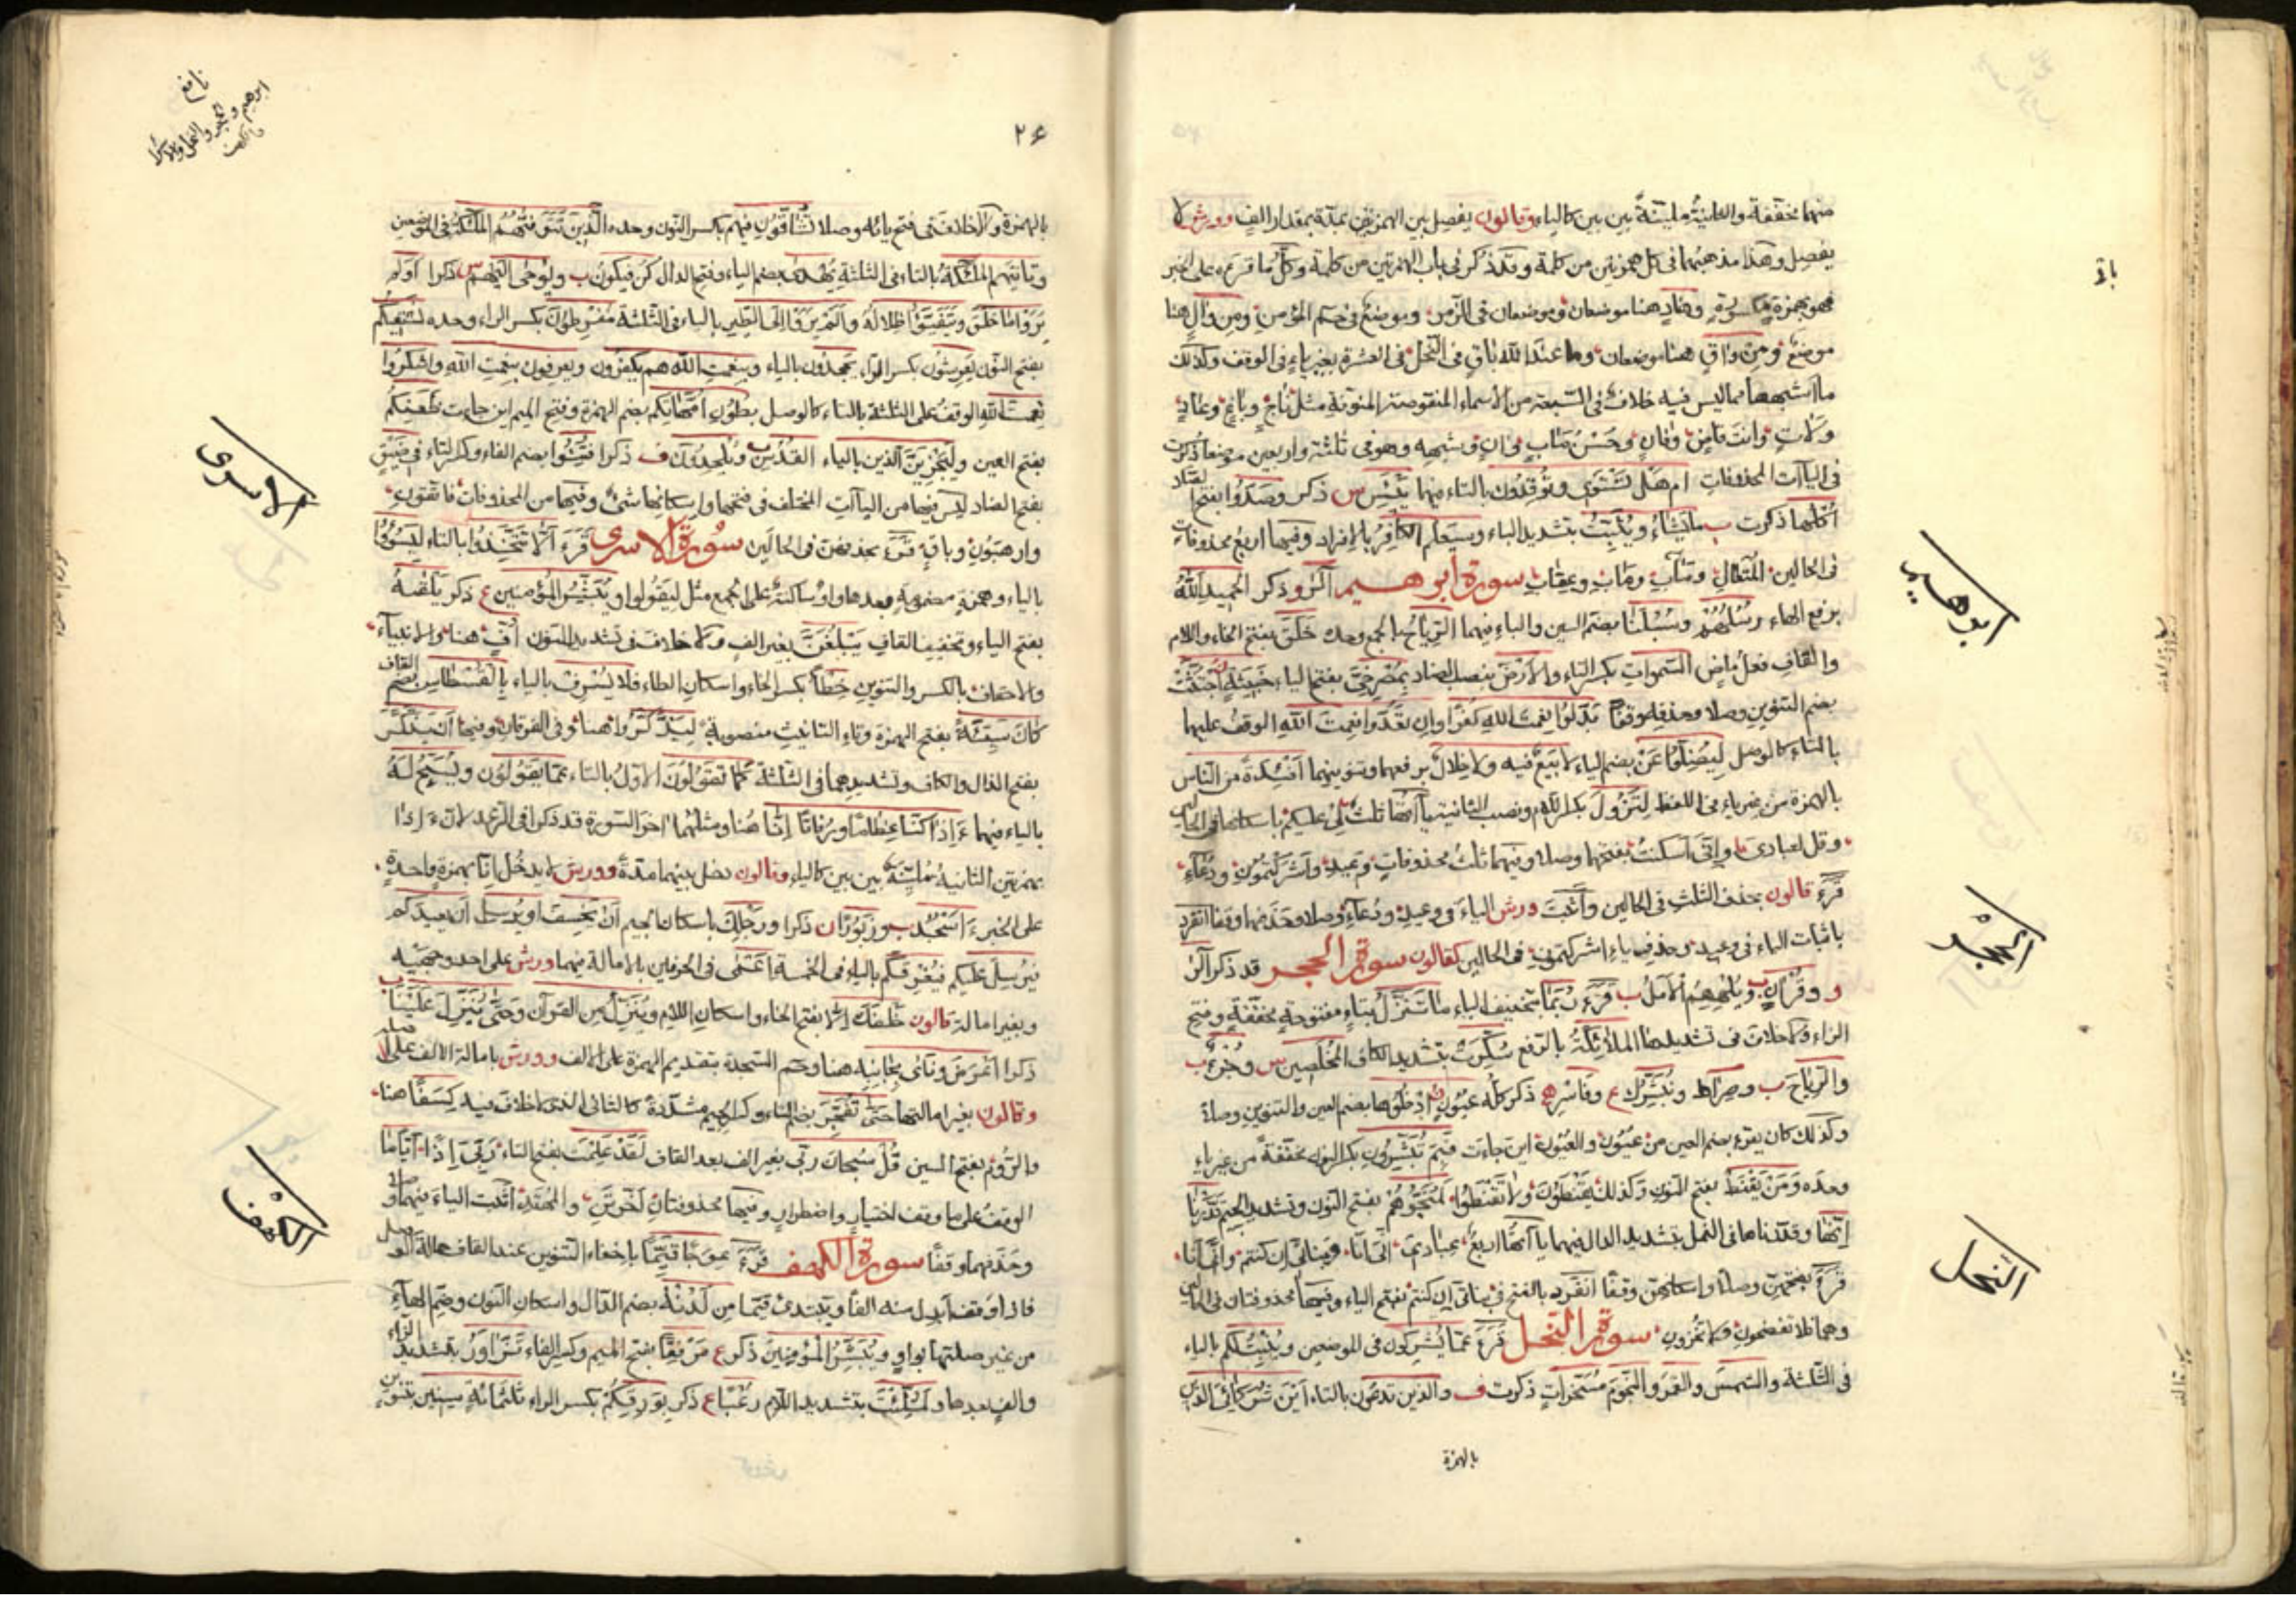 منهما مخففة والثانية ملينة بين بين كالياء وقالون يفصل بين الهمزتين بمدة بمقدار الف وورش لا
يفصل وهذا مذهبهما فى كل همزتين من كلمة وقد ذكر فى باب الهمزتين من كلمة وكل ما قرئ على الخبر
فهو بهمزة مكسورة وهاد هنا موضعان وموضعان فى الزمر وموضع فى حم المؤمن ومن وال هنا
موضع ومن واق هنا موضعان وما عند الله باق فى النحل فى العشرة بغير ياء فى الوقف وكذلك
ما اشبهها مما ليس فيه خلاف فى السبعة من الاسماء المنقوصة المنونة مثل ناج وباغ وعاد
وفان وشبهه وهو فى ثلثة واربعين موضعا ذكرت
فى الياآت المحذوفات ام هل تستوى وتوقدون بالتاء فيهما ييئس س ذكر وصدوا بفتح الصاد
اكلها ذكرت ب ما يشاء ويثبت بتشديد الباء وسيعلم الكافر بالافراد وفيها اربع محذوفات
فى الحالين المتعال ومآب ومتاب وعقاب سورة ابرهيم الر و ذكر الحميد الله
برفع الهاء رسلهم وسبلنا بضم السين والباء فيهما الرياح بالجمع وحده خلق بفتح الخاء واللام
والقاف فعل ماض السموات بكسر التاء والارض بنصب الضاد بمصرخى بفتح الياء خبيثة اجتثت
بضم التنوين وصلا وحذفه وقفا بدلوا نعمت الله كفرا وان تعدوا نعمت الله الوقف عليهما
بالتاء كالوصل ليضلوا عن بضم الياء لا بيع فيه ولا خلال برفعهما وتنوينهما افئدة من الناس
بالهمزة من غير ياء فى اللفظ لتزول بكسر اللام ونصب الثانية ياآتها ثلث لى عليكم باسكانها فى الحالين
وقل لعبادى وانى اسكنت بفتحهما وصلا وفيها ثلث محذوفات وعيد واشركتمون ودعاء
قرء قالون بحذف الثلث فى الحالين واثبت ورش الياء فى وعيد ودعاء وصلا وحذفهما وقفا انفرد
باثبات الياء فى وعيد وحذف ياء اشركتمون فى الحالين كقالون سورة الحجر قد ذكر الر
و وقران ب ويلههم الامل ب قرء ربما بتخفيف الباء ما تنزل بتاء مفتوحة مخففة وفتح
الزاء ولا خلاف فى تشديدها الملائكة بالرفع سكرت بتشديد الكاف المخلصين س وجزء ب
والرياح ب وصراط ونبشرك ع وفاسر ه ذكر كله عيون ن ادخلوها بضم العين والتنوين وصلا
وكذلك كان يقرء بضم العين من عيون والعيون اين جاءت فبم تبشرون بكسر النون مخففة من غير ياء
وحده ومن يقنط بفتح النون وكذلك يقنطون ولا تقنطوا لمنجوهم بفتح النون وتشديد الجيم قدرنا
انها وقدرناها فى النمل بتشديد الدال فيهما ياآتها اربع عبادى انى انا وبناتى ان كنتم وانى انا
قرء بفتحهن وصلا واسكانهن وقفا انفرد بالفتح فى بناتى ان كنتم بفتح الياء وفيها محذوفتان فى الحالين
وهما فلا تفضحون ولا تخزون سورة النحل قرء عما يشركون فى الموضعين وينبت لكم بالياء
فى الثلثة والشمس والقمر والنجوم مسخرات ذكرت ف والذين تدعون بالتاء اين شركائى الذين
بالهمزة
ابرهيم
الحجر
النحل
نافع
ابرهيم والحجر والنحل والاسرا
والكهف
٢۶
بالهمزة ولا خلاف فى فتح يائه وصلا تشاقون فيهم بكسر النون وحده الذين تتوفيهم الملئكة فى الموضعين
وتاتيهم الملئكة بالتاء فى الثلثة يهدى بضم الياء وفتح الدال كن فيكون ب ويوحى اليهم س ذكرا اولم
يروا ما خلق ويتفيؤا ظلاله والم يروا الى الطير بالياء فى الثلثة مفرطون بكسر الراء وحده نسقيكم
بفتح النون يعرشون بكسر الراء يجحدون بالياء وبنعمت الله هم يكفرون ويعرفون نعمت الله واشكروا
نعمت الله الوقف على الثلثة بالتاء كالوصل بطون امهاتكم بضم الهمزة وفتح الميم اين جاءت ظعنكم
بفتح العين وليجزين الذين بالياء القدس ب ويلحدون ف ذكرا فتنوا بضم الفاء وكسر التاء فى ضيق
بفتح الضاد ليس فيها من الياآت المختلف فى فتحها واسكانها شئ وفيها من المحذوفات فاتقون
وارهبون وباق قرء بحذفهن فى الحالين سورة الاسرى قرء الا تتخذوا بالتاء ليسوؤا
بالياء وهمزة مضمومة بعدها واو ساكنة على الجمع مثل ليقولوا ويبشر المؤمنين ع ذكر يلقيه
بفتح الياء وتخفيف القاف يبلغن بغير الف ولا خلاف فى تشديد النون اف هنا والانبياء
والاحقاف بالكسر والتنوين خطأ بكسر الخاء واسكان الطاء فلا يسرف بالياء بالقسطاس بضم القاف
كان سيئة بفتح الهمزة وتاء التانيث منصوبة ليذكروا هنا وفى الفرقان وفيها ان يذكر
بفتح الذال والكاف وتشديدهما فى الثلثة كما تقولون الاول بالتاء عما يقولون ويسبح له
بالياء فيهما ءاذا كنا عظاما ورفاتا انا هنا ومثلهما اخر السورة قد ذكرا فى الرعد لان ءاذا
بهمزتين الثانية ملينة بين بين كالياء وقالون يفصل بينهما مدة وورش لا يدخل انا بهمزة واحدة
على الخبر ءاسجد ب وزبورا ن ذكرا ورجلك باسكان الجيم ان يخسف او يرسل ان يعيدكم
فيرسل عليكم فيغرقكم بالياء فى الخمسة اعمى فى الحرفين بالامالة فيهما ورش على احد وجهيه
وبغير امالة قالون خلفك الا بفتح الخاء واسكان اللام وننزل من القرآن وحتى تنزل علينا ب
ذكرا اعرض ونأى بجانبه هنا وحم السجدة بتقديم الهمزة على الالف وورش بامالة الالف على اصله
وقالون بغير امالتها حتى تفجر بضم التاء وكسر الجيم مشددة كالثانى الذى لا خلاف فيه كسفا هنا
والروم بفتح السين قل سبحان ربى بغير الف بعد القاف لقد علمت بفتح التاء ربى اذا اياما
الوقف على ما وقف اختيار واضطرار وفيها محذوفتان اخرتن والمهتد اثبت الياء فيهما وصلا
وحذفهما وقفا سورة الكهف قرء عوجا قيما باخفاء التنوين عند القاف حالة الوصل
فاذا وقف ابدل منه الفا ويبتدئ قيما من لدنه بضم الدال واسكان النون وضم الهاء
من غير صلتها بواو ويبشر المؤمنين ذكر ع مرفقا بفتح الميم وكسر الفاء تزاور بتشديد الزاء
والف بعدها ولملئت بتشديد اللام رعبا ع ذكر بورقكم بكسر الراء ثلثمائة سنين بتنوين
الاسرى
الكهف